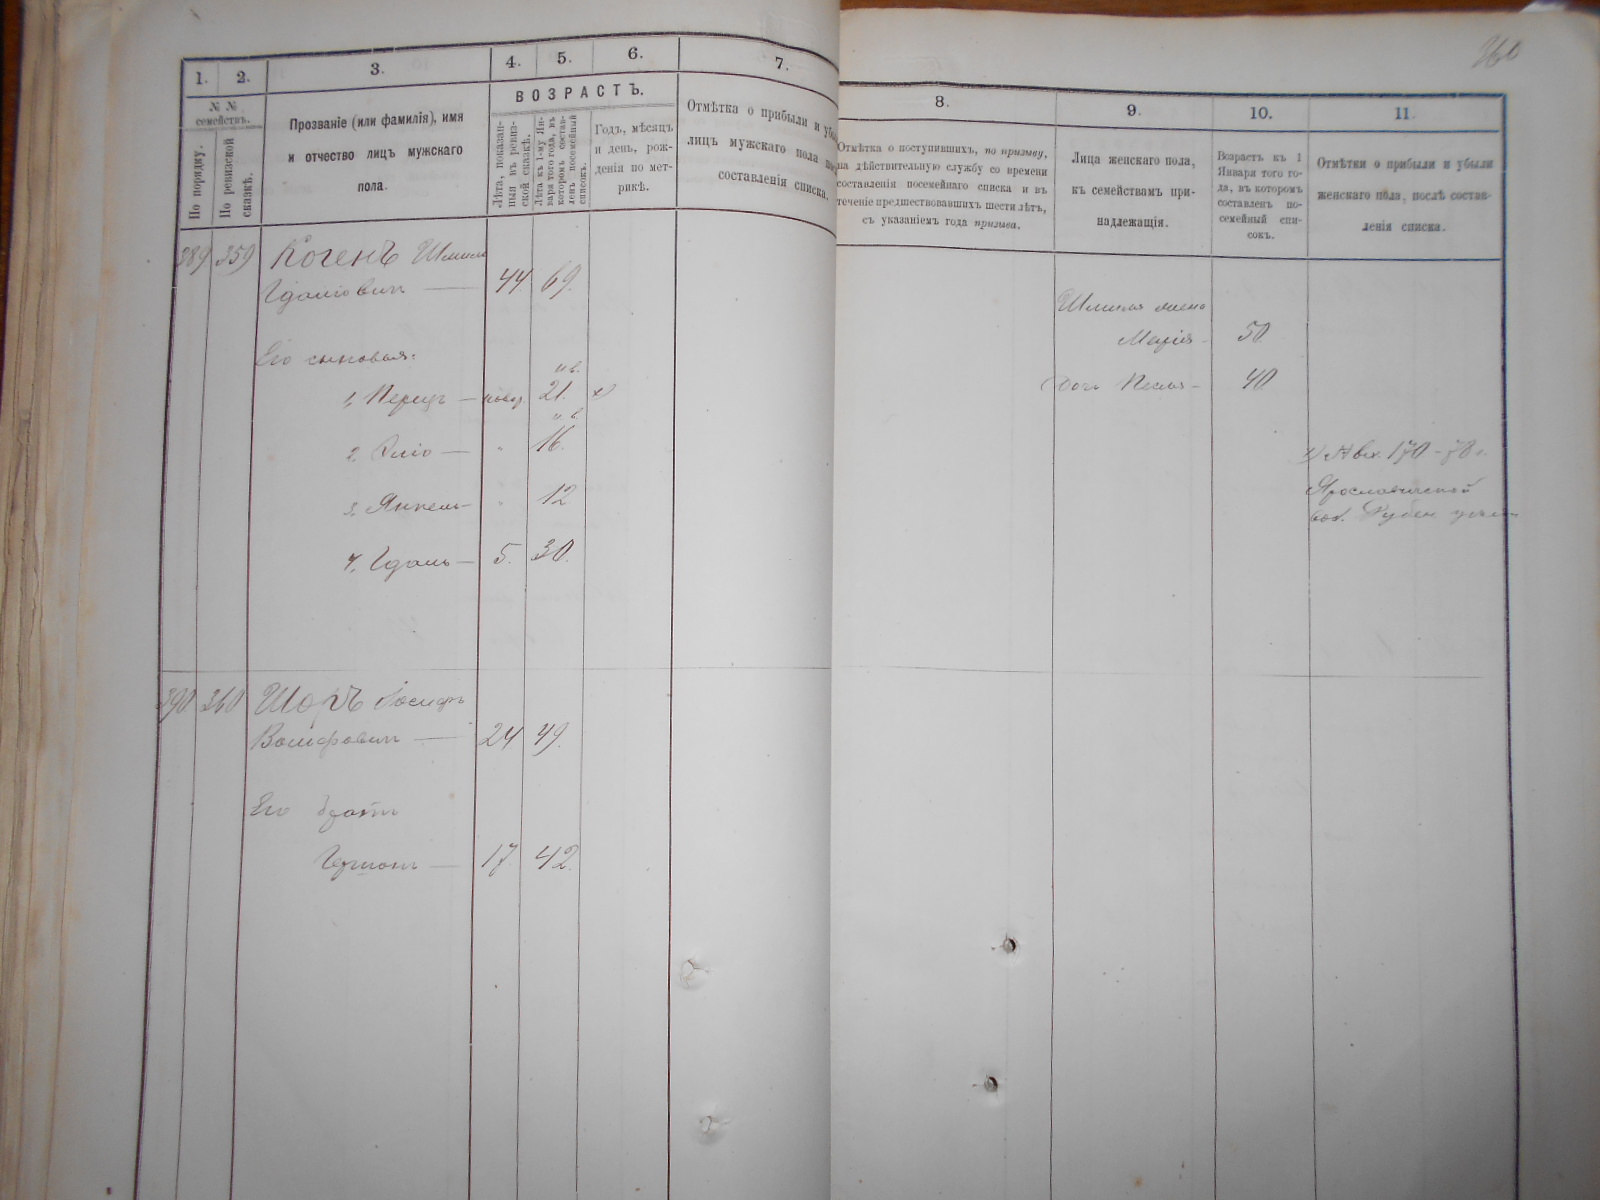 260
1.
2.
3.
4.
5.
6.
7.
8.
9.
10.
11.
№ №
семействъ.
По порядку.
По ревизской
сказкѣ.
Прозваніе (или фамилія), имя
и отчество лицъ мужскаго
пола.
ВОЗРАСТЪ.
Лѣта, показан-
ныя въ ревиз-
ской сказкѣ.
Лѣта къ 1-му Ян-
варя того года, въ
которомъ состав-
ленъ посемейный
списокъ.
Годъ, мѣсяцъ
и день, рож-
денія по мет-
рикѣ.
Отмѣтка о прибыли и
лицъ мужскаго пола
составленія списка.
Отмѣтка о поступившихъ, по призыву,
на дѣйствительную службу со времени
составленія посемейнаго списка и въ
теченіе предшествовавшихъ шести лѣтъ,
съ указаніемъ года призыва.
Лица женскаго пола,
къ семействамъ при-
надлежащія.
Возрастъ къ 1
Января того го-
да, въ которомъ
составленъ по-
семейный спи-
сокъ.
Отмѣтки о прибыли и убыли
женскаго пола, послѣ состав-
ленія списка.
389 359 Когенъ
Гдаліовичъ — 44 69.
Шмуля жена
Марія - 50
Его сыновья:
1. Перецъ — 21.
Дочь Песля - 40
2. — 16.
3. Янкель - 12
4. Гдаль — 5. 30.
390 360 Шоръ Іосифъ
Вольфовичъ — 24 49.
Его братъ
Гершонъ — 17 42.